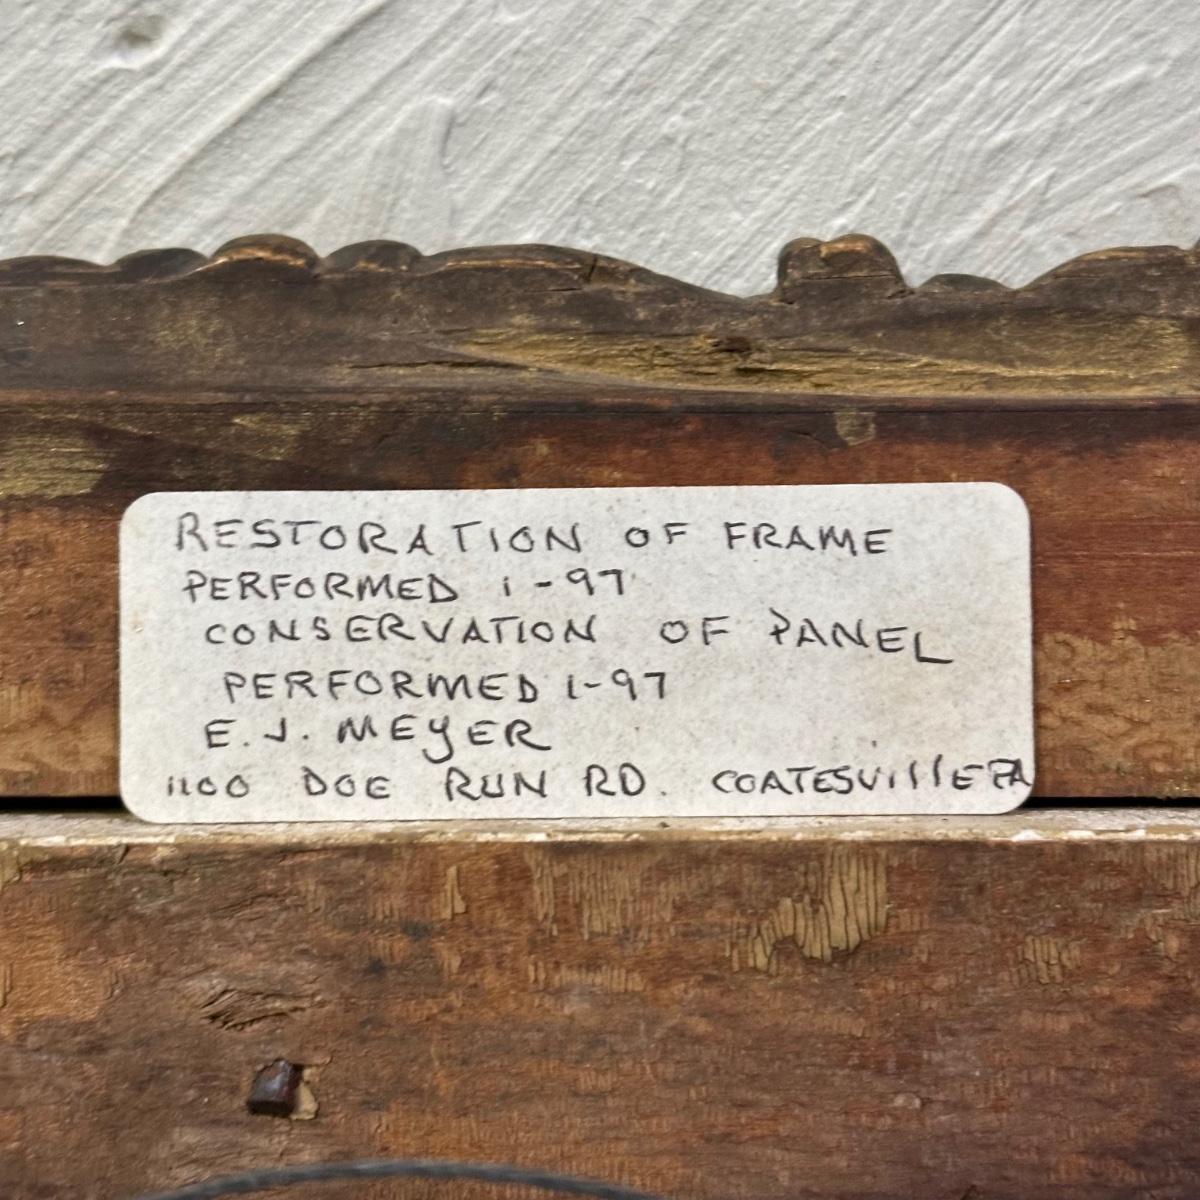 RESTORATION OF FRAME
PERFORMED 1-97
CONSERVATION OF PANEL
PERFORMED 1-97
E.J. MEYER
1100 DOE RUN RD. COATESVIllE PA